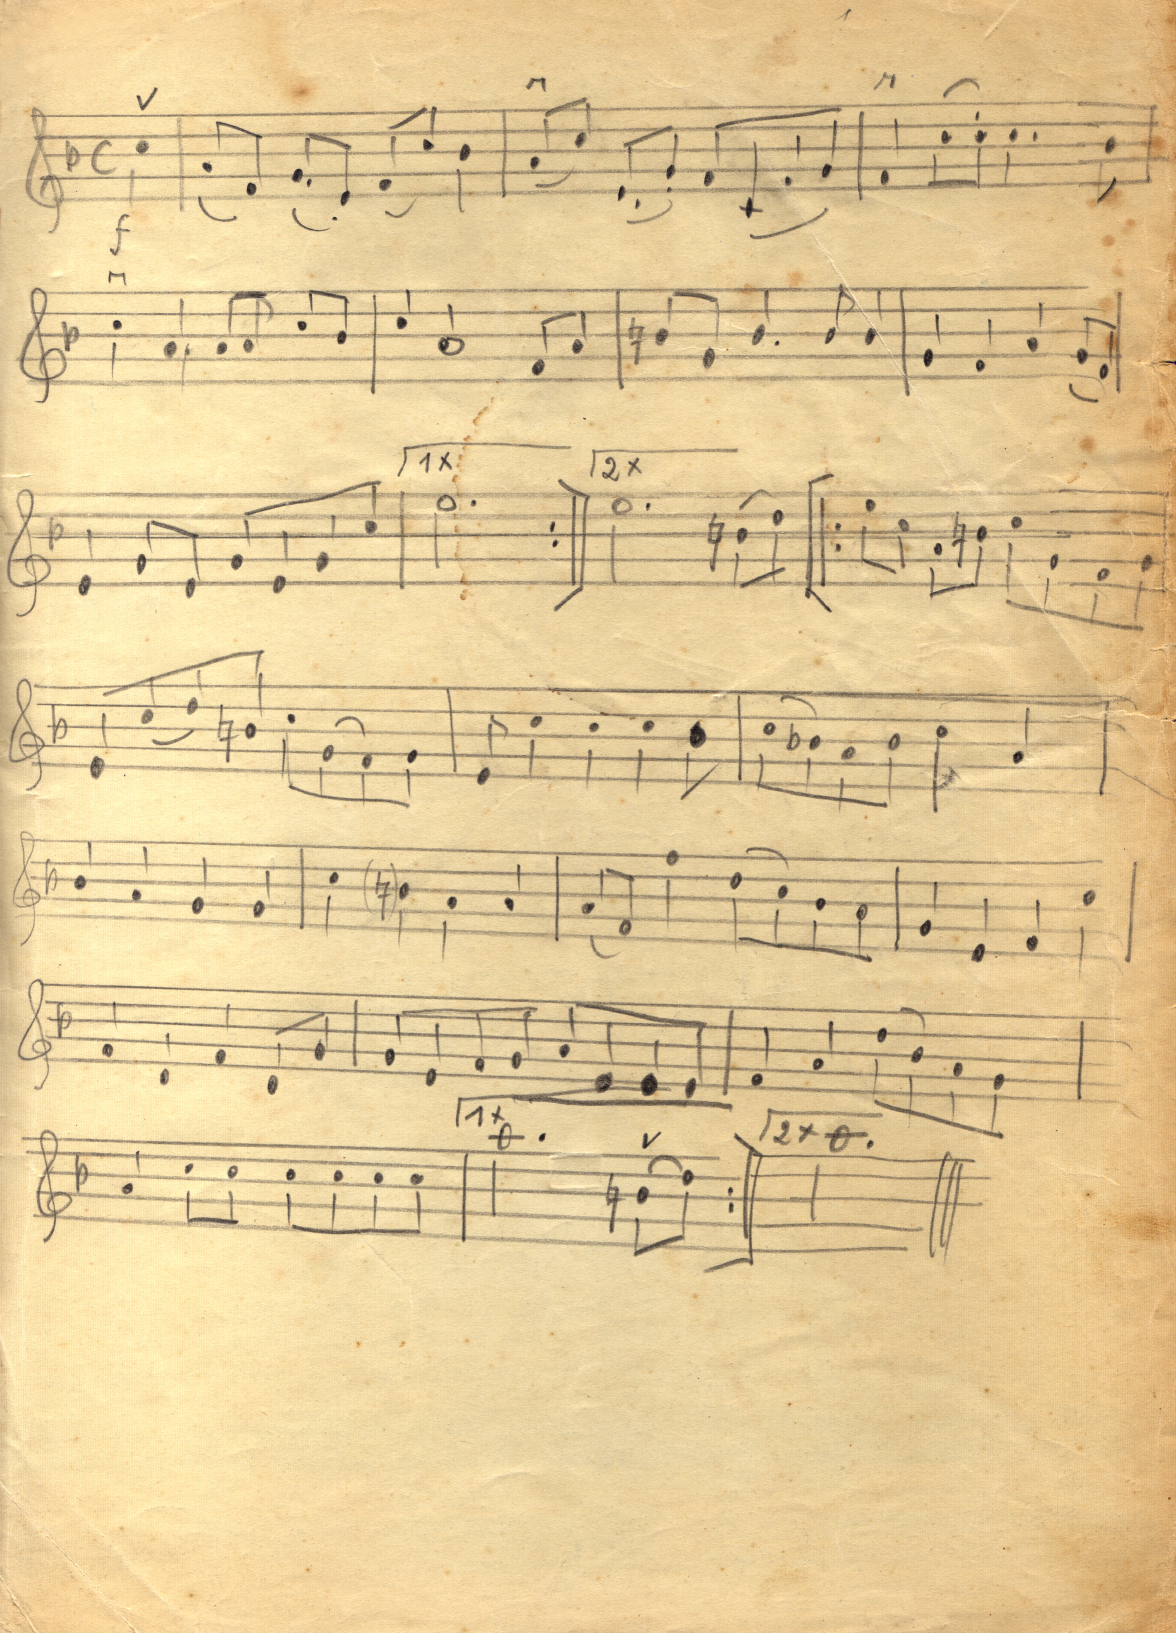 f
1x 2x
1x 2x